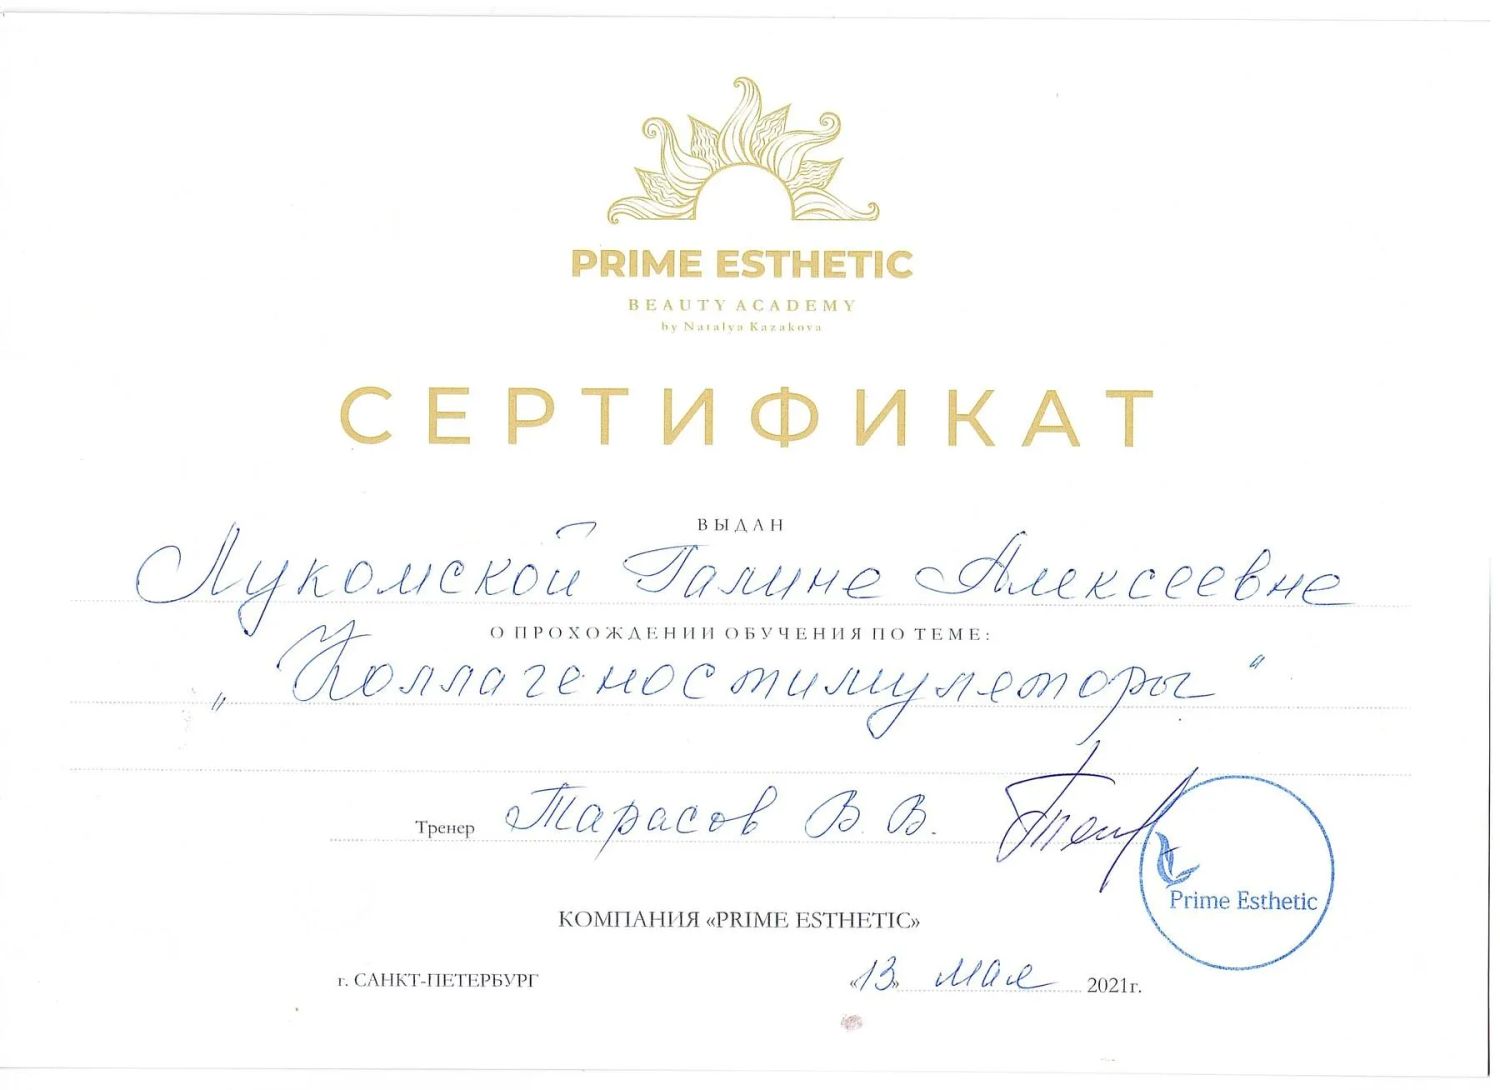 PRIME ESTHETIC
BEAUTY ACADEMY
by Natalya Kazakova
СЕРТИФИКАТ
ВЫДАН
Лукомской Галине Алексеевне
О ПРОХОЖДЕНИИ ОБУЧЕНИЯ ПО ТЕМЕ:
„Коллагеностимуляторы“
Тренер Тарасов В. В.
Prime Esthetic
КОМПАНИЯ «PRIME ESTHETIC»
г. САНКТ-ПЕТЕРБУРГ «13» мая 2021г.